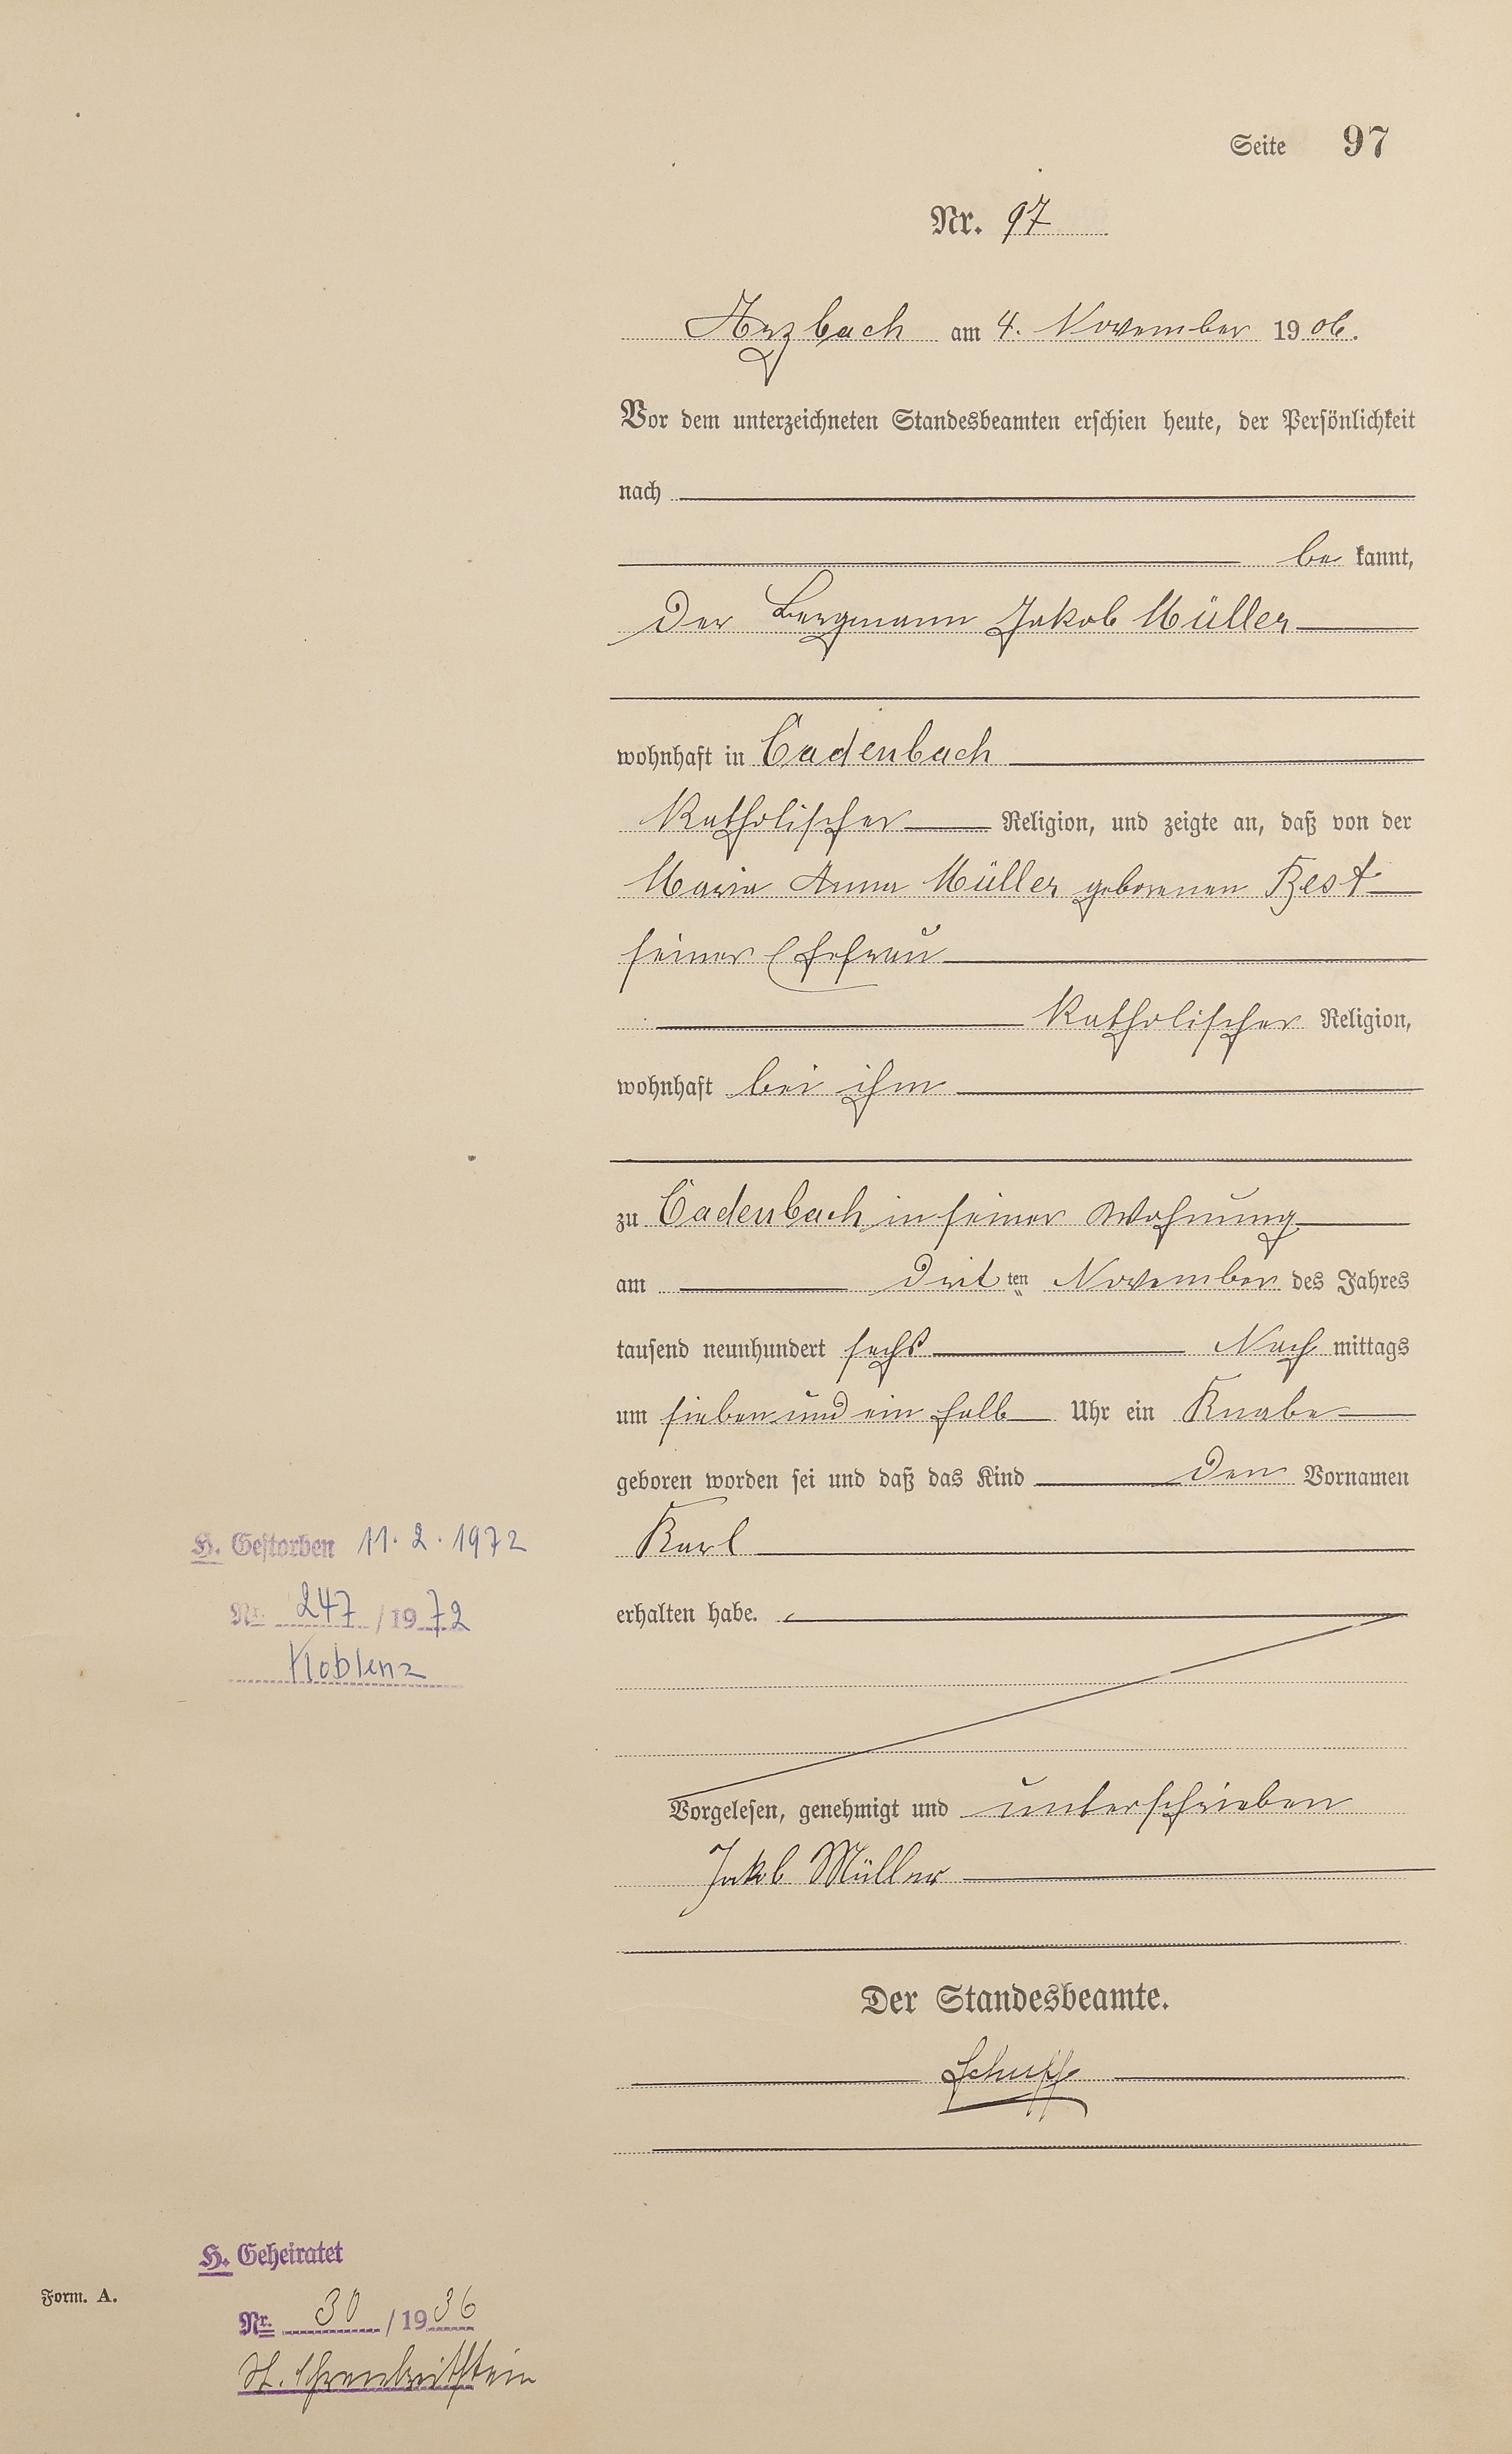 Seite 97
Nr. 97
Arzbach am 4. November 1906.
Vor dem unterzeichneten Standesbeamten erschien heute, der Persönlichkeit
nach
be kannt,
der Bergmann Jakob Müller
wohnhaft in Cadenbach
katholischer Religion, und zeigte an, daß von der
Maria Anna Müller geborenen Best
seiner Ehefrau
katholischer Religion,
wohnhaft bei ihm
zu Cadenbach in seiner Wohnung
am dritten November des Jahres
tausend neunhundert sechs Nachmittags
um sieben und ein halb Uhr ein Knabe
geboren worden sei und daß das Kind den Vornamen
Karl
erhalten habe.
Vorgelesen, genehmigt und unterschrieben
Jakob Müller
Der Standesbeamte.
Schupp
H. Gestorben 11.2.1972
Nr. 247/1972
Koblenz
H. Geheiratet
Nr. 30/1936
St. Ehrenbreitstein
Form. A.